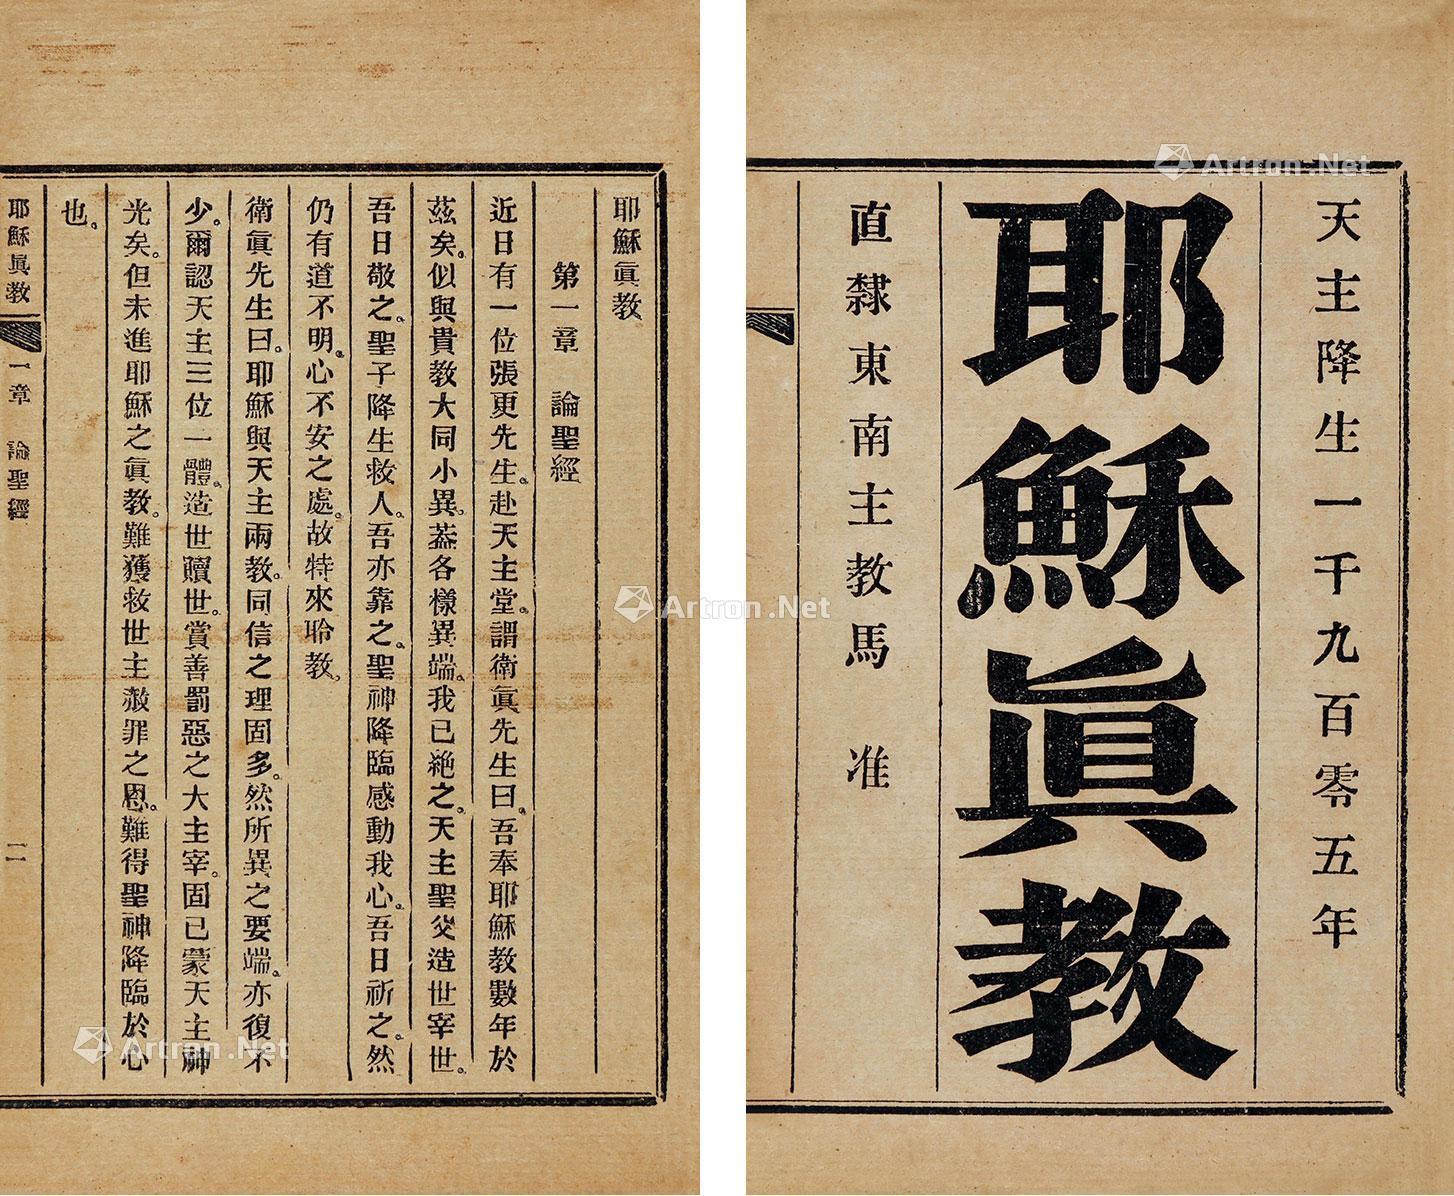 天主降生一千九百零五年
耶穌眞教
直隸東南主教馬　准
耶穌眞教
第一章　論聖經
近日有一位張更先生。赴天主堂。謂衛眞先生曰。吾奉耶穌教數年於
茲矣。似與貴教大同小異。葢各樣異端。我已絶之。天主聖父造世宰世。
吾日敬之。聖子降生救人。吾亦靠之。聖神降臨感動我心。吾日祈之。然
仍有道不明。心不安之處。故特來聆教。
衛眞先生曰。耶穌與天主兩教。同信之理固多。然所異之要端。亦復不
少。爾認天主三位一體。造世贖世。賞善罰惡之大主宰。固已蒙天主神
光矣。但未進耶穌之眞教。難獲救世主赦罪之恩。難得聖神降臨於心
也。
耶穌眞教　一章　論聖經　二
Artron.Net
Artron.Net
Artron.Net